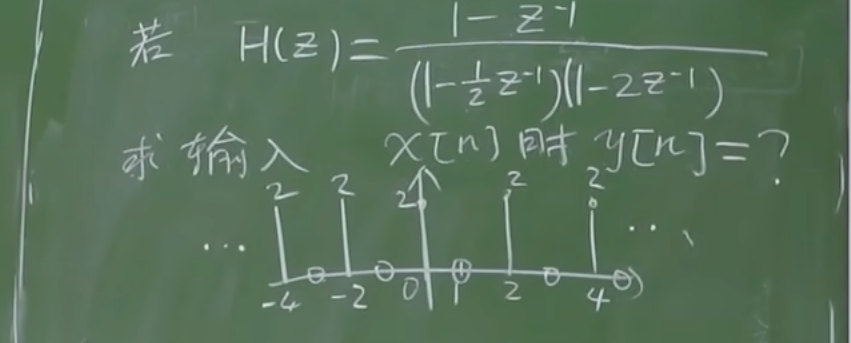 若 H(z)=
1-z⁻¹
(1-½z⁻¹)(1-2z⁻¹)
求输入 x[n]时 y[n]=?
2 2 2 2 2
... ...
-4 -2 0 1 2 4